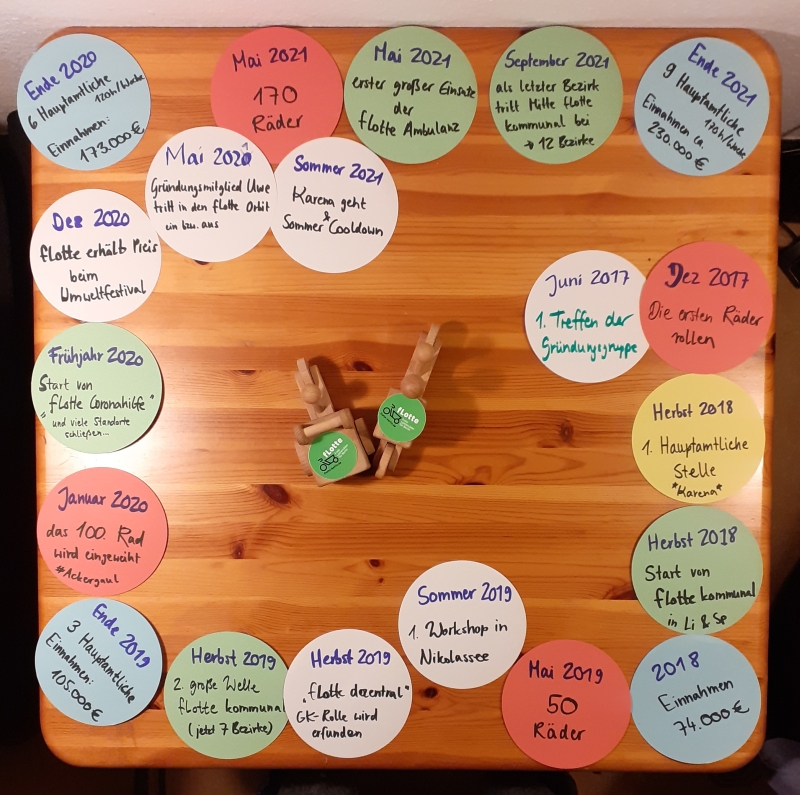 Ende 2020
6 Hauptamtliche
120h/Woche
Einnahmen:
173.000€
Mai 2021
170
Räder
Mai 2021
erster großer Einsatz
der
flotte Ambulanz
September 2021
als letzter Bezirk
tritt Mitte flotte
kommunal bei
→ 12 Bezirke
Ende 2021
9 Hauptamtliche
170h/Woche
Einnahmen ca.
230.000 €
Mai 2021
Gründungsmitglied Uwe
tritt in den flotte Orbit
ein bzw. aus
Sommer 2021
Karena geht
&
Sommer Cooldown
Dez 2020
flotte erhält Preis
beim
Umweltfestival
Juni 2017
1. Treffen der
Gründungsgruppe
Dez 2017
Die ersten Räder
rollen
Frühjahr 2020
Start von
"flotte Coronahilfe"
und viele Standorte
schließen...
fLotte
fLotte
Herbst 2018
1. Hauptamtliche
Stelle
*Karena*
Januar 2020
das 100. Rad
wird eingeweiht
#Ackergaul
Herbst 2018
Start von
flotte kommunal
in Li & Sp
Ende 2019
3 Hauptamtliche
Einnahmen:
105.000€
Herbst 2019
2. große Welle
flotte kommunal
(jetzt 7 Bezirke)
Herbst 2019
"flotte dezentral"
GK-Rolle wird
erfunden
Sommer 2019
1. Workshop in
Nikolassee
Mai 2019
50
Räder
2018
Einnahmen
74.000€